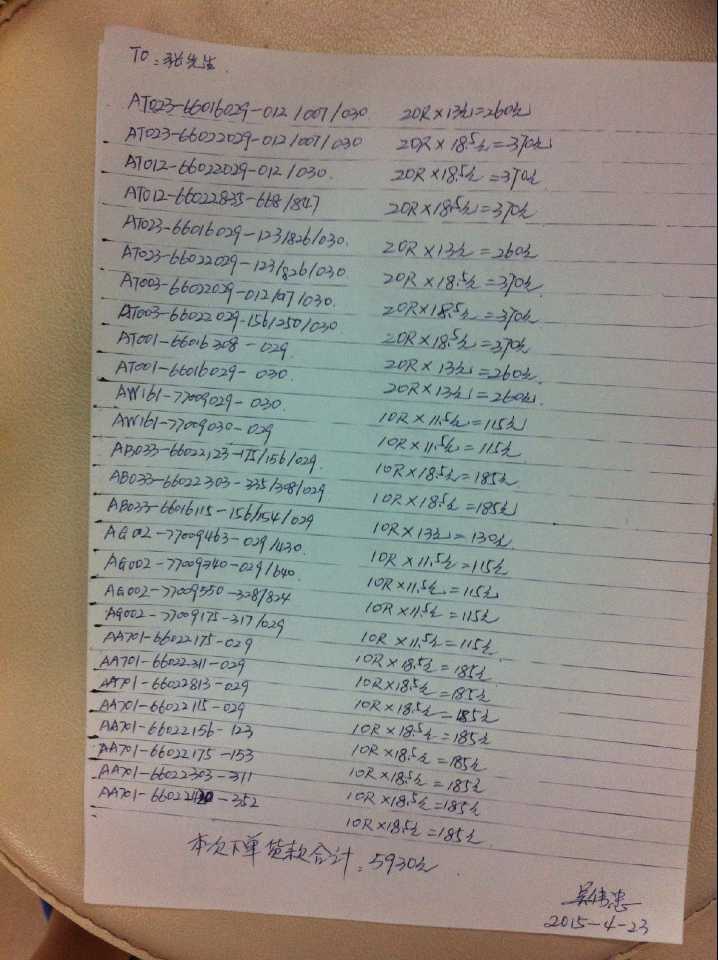 TO:张先生.
AT023-66016029-012/007/030 20R×13元=260元
AT023-66022029-012/007/030 20R×18.5元=370元
AT012-66022029-012/030. 20R×18.5元=370元
AT012-66022835-668/847 20R×18.5元=370元
AT023-66016029-123/826/030. 20R×13元=260元
AT023-66022029-123/826/030 20R×18.5元=370元
AT003-66022029-012/07/030. 20R×18.5元=370元
AT003-66022029-156/250/030 20R×18.5元=370元
AT001-66016308-029 20R×13元=260元
AT001-66016029-030. 20R×13元=260元.
AW161-77009029-030. 10R×11.5元=115元
AW161-77009030-029 10R×11.5元=115元
AB033-66022123-175/156/029. 10R×18.5元=185元
AB033-66022303-335/398/029 10R×18.5元=185元
AB033-66016115-156/154/029 10R×13元=130元.
AG002-77009463-029/430. 10R×11.5元=115元
AG002-77009340-029/640. 10R×11.5元=115元
AG002-77009550-328/824 10R×11.5元=115元
AG002-77009175-317/029 10R×11.5元=115元
AA701-66022175-029 10R×18.5元=185元
AA701-66022311-029 10R×18.5元=185元
AA701-66022813-029 10R×18.5元=185元
AA701-66022115-029 10R×18.5元=185元
AA701-66022156-123 10R×18.5元=185元
AA701-66022175-153 10R×18.5元=185元
AA701-66022303-311 10R×18.5元=185元
AA701-66022120-352 10R×18.5元=185元
本次下单货款合计:5930元
吴伟忠
2015-4-23